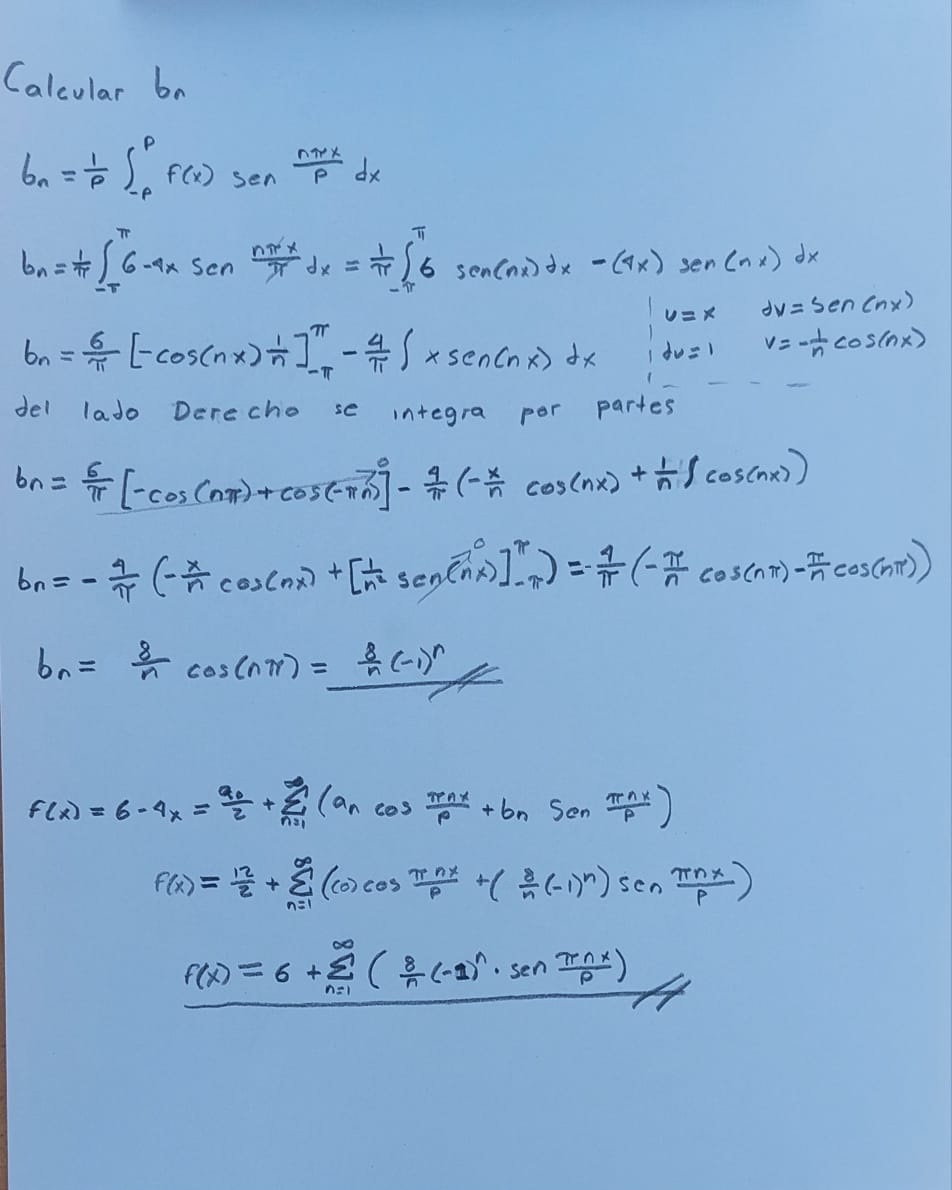 Calcular bn
bn = 1/p ∫_{-p}^{p} f(x) sen nπx/p dx
bn = 1/π ∫_{-π}^{π} 6-4x sen nπx/π dx = 1/π ∫_{-π}^{π} 6 sen(nx) dx - (4x) sen(nx) dx
bn = 6/π [-cos(nx) 1/n]_{-π}^{π} - 4/π ∫ x sen(nx) dx
u=x dv=sen(nx)
du=1 v=-1/n cos(nx)
del lado Derecho se integra por partes
bn = 6/π [-cos(nπ)+cos(-πn)]→0 - 4/π (-x/n cos(nx) + 1/n ∫ cos(nx))
bn = - 4/π (-x/n cos(nx) + [1/n² sen(nx)→0]_{-π}^{π}) = -4/π (-π/n cos(nπ) - π/n cos(nπ))
bn = 8/n cos(nπ) = 8/n (-1)^n
f(x) = 6-4x = a0/2 + Σ_{n=1}^{∞} (an cos πnx/p + bn Sen πnx/p)
f(x) = 12/2 + Σ_{n=1}^{∞} ((0) cos πnx/p + (8/n (-1)^n) sen πnx/p)
f(x) = 6 + Σ_{n=1}^{∞} (8/n (-1)^n · sen πnx/p)